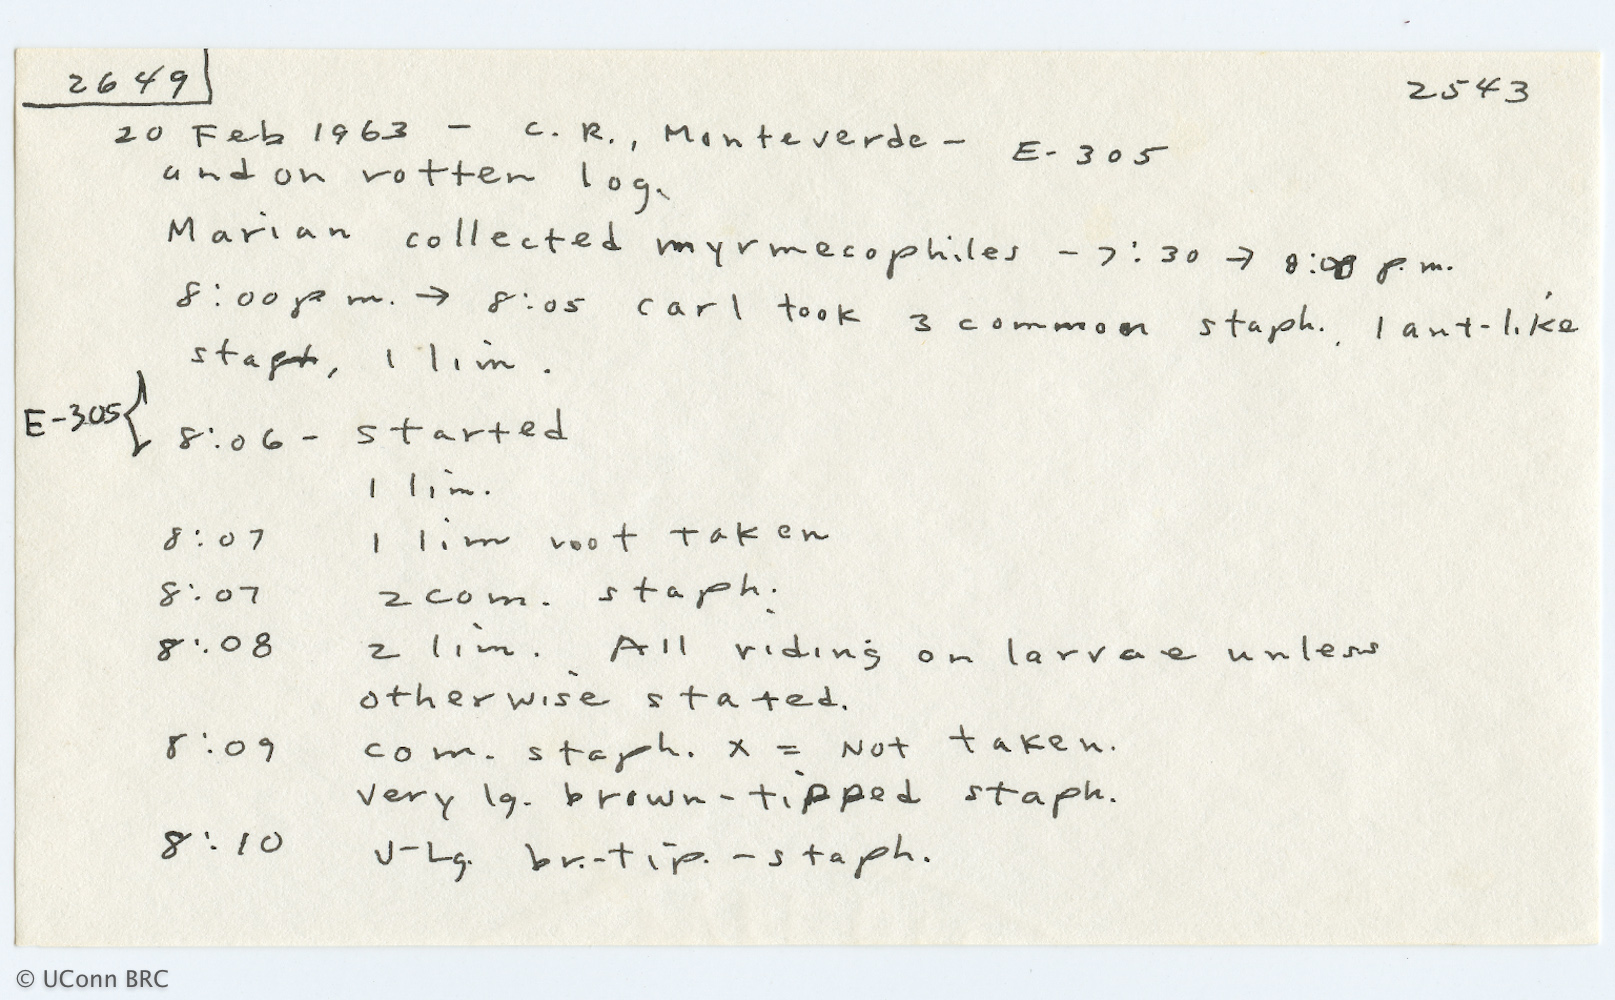 2649
2543
20 Feb 1963 - C.R., Monteverde - E-305
and on rotten log.
Marian collected myrmecophiles - 7:30 → 8:00 p.m.
8:00 p m. → 8:05 Carl took 3 common staph., 1 ant-like
staph, 1 lim.
E-305 { 8:06 - started
1 lim.
8:07 1 lim not taken
8:07 2 com. staph.
8:08 2 lim. All riding on larvae unless
otherwise stated.
8:09 com. staph. x = Not taken.
very lg. brown-tipped staph.
8:10 V-Lg. br.-tip.-staph.
© UConn BRC